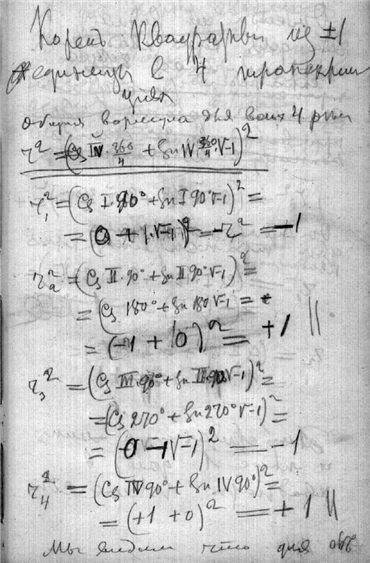 Корень Квадратный из ±1
единицы в 4
общая формула для всех 4
r² = (Cs IV·360/4 + Sn IV 360/4 √-1)²
r₁² = (Cs I 90° + Sn I 90° √-1)² =
= (0 + 1·√-1)² = -r² = -1
r₂² = (Cs II·90° + Sn II 90° √-1)² =
= (Cs 180° + Sn 180 √-1 =
= (-1 + 0)² = +1 ||
r₃² = (Cs III·90° + Sn III·90 √-1)² =
= (Cs 270° + Sn 270° √-1)² =
= (0 - 1√-1)² = -1
r₄² = (Cs IV 90° + Sn IV 90°)² =
= (+1 + 0)² = +1 ||
Мы видим что для